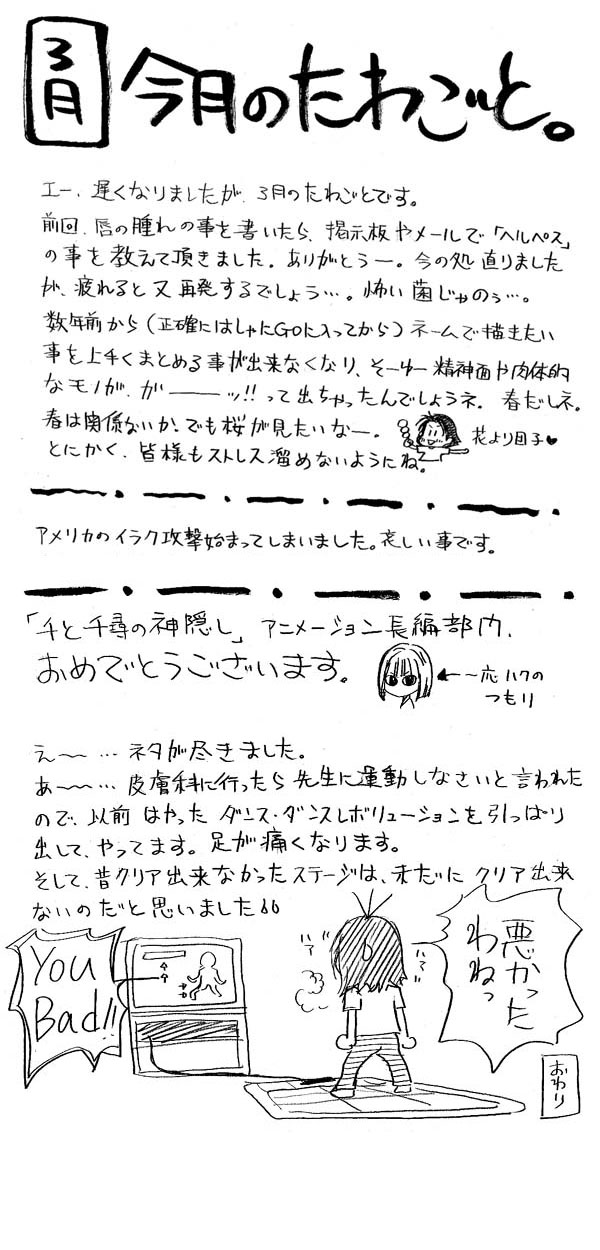 3月
今月のたわごと。
エー、遅くなりましたが、3月のたわごとです。
前回、唇の腫れの事を書いたら、掲示板やメールで「ヘルペス」
の事を教えて頂きました。ありがとうー。今の処直りました
が、疲れると又再発するでしょう…。怖い菌じゃのぅ…。
数年前から(正確にはしゃにGOに入ってから)ネームで描きたい
事を上手くまとめる事が出来なくなり、そーゆー精神面や肉体的
なモノが、が――ッ!!って出ちゃったんでしょうネ。春だしネ。
春は関係ないか、でも桜が見たいなー。
花より団子♥
とにかく、皆様もストレス溜めないようにね。
アメリカのイラク攻撃始まってしまいました。哀しい事です。
「千と千尋の神隠し」アニメーション長編部門、
おめでとうございます。
←~応ハクの
つもり
え〜〜…ネタが尽きました。
あ〜〜…皮膚科に行ったら先生に運動しなさいと言われた
ので、以前はやったダンス・ダンスレボリューションを引っぱり
出して、やってます。足が痛くなります。
そして、昔クリア出来なかったステージは、未だにクリア出来
ないのだと思いました
You
Bad!!
ハァ
ハァ
悪かった
わねっ
おわり